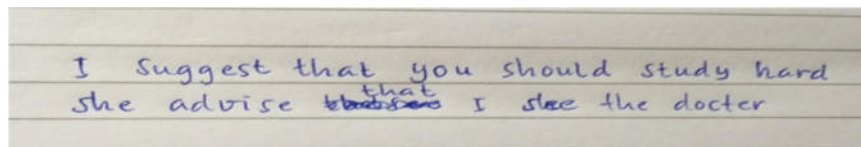 I suggest that you should study hard
she advise that I see the docter